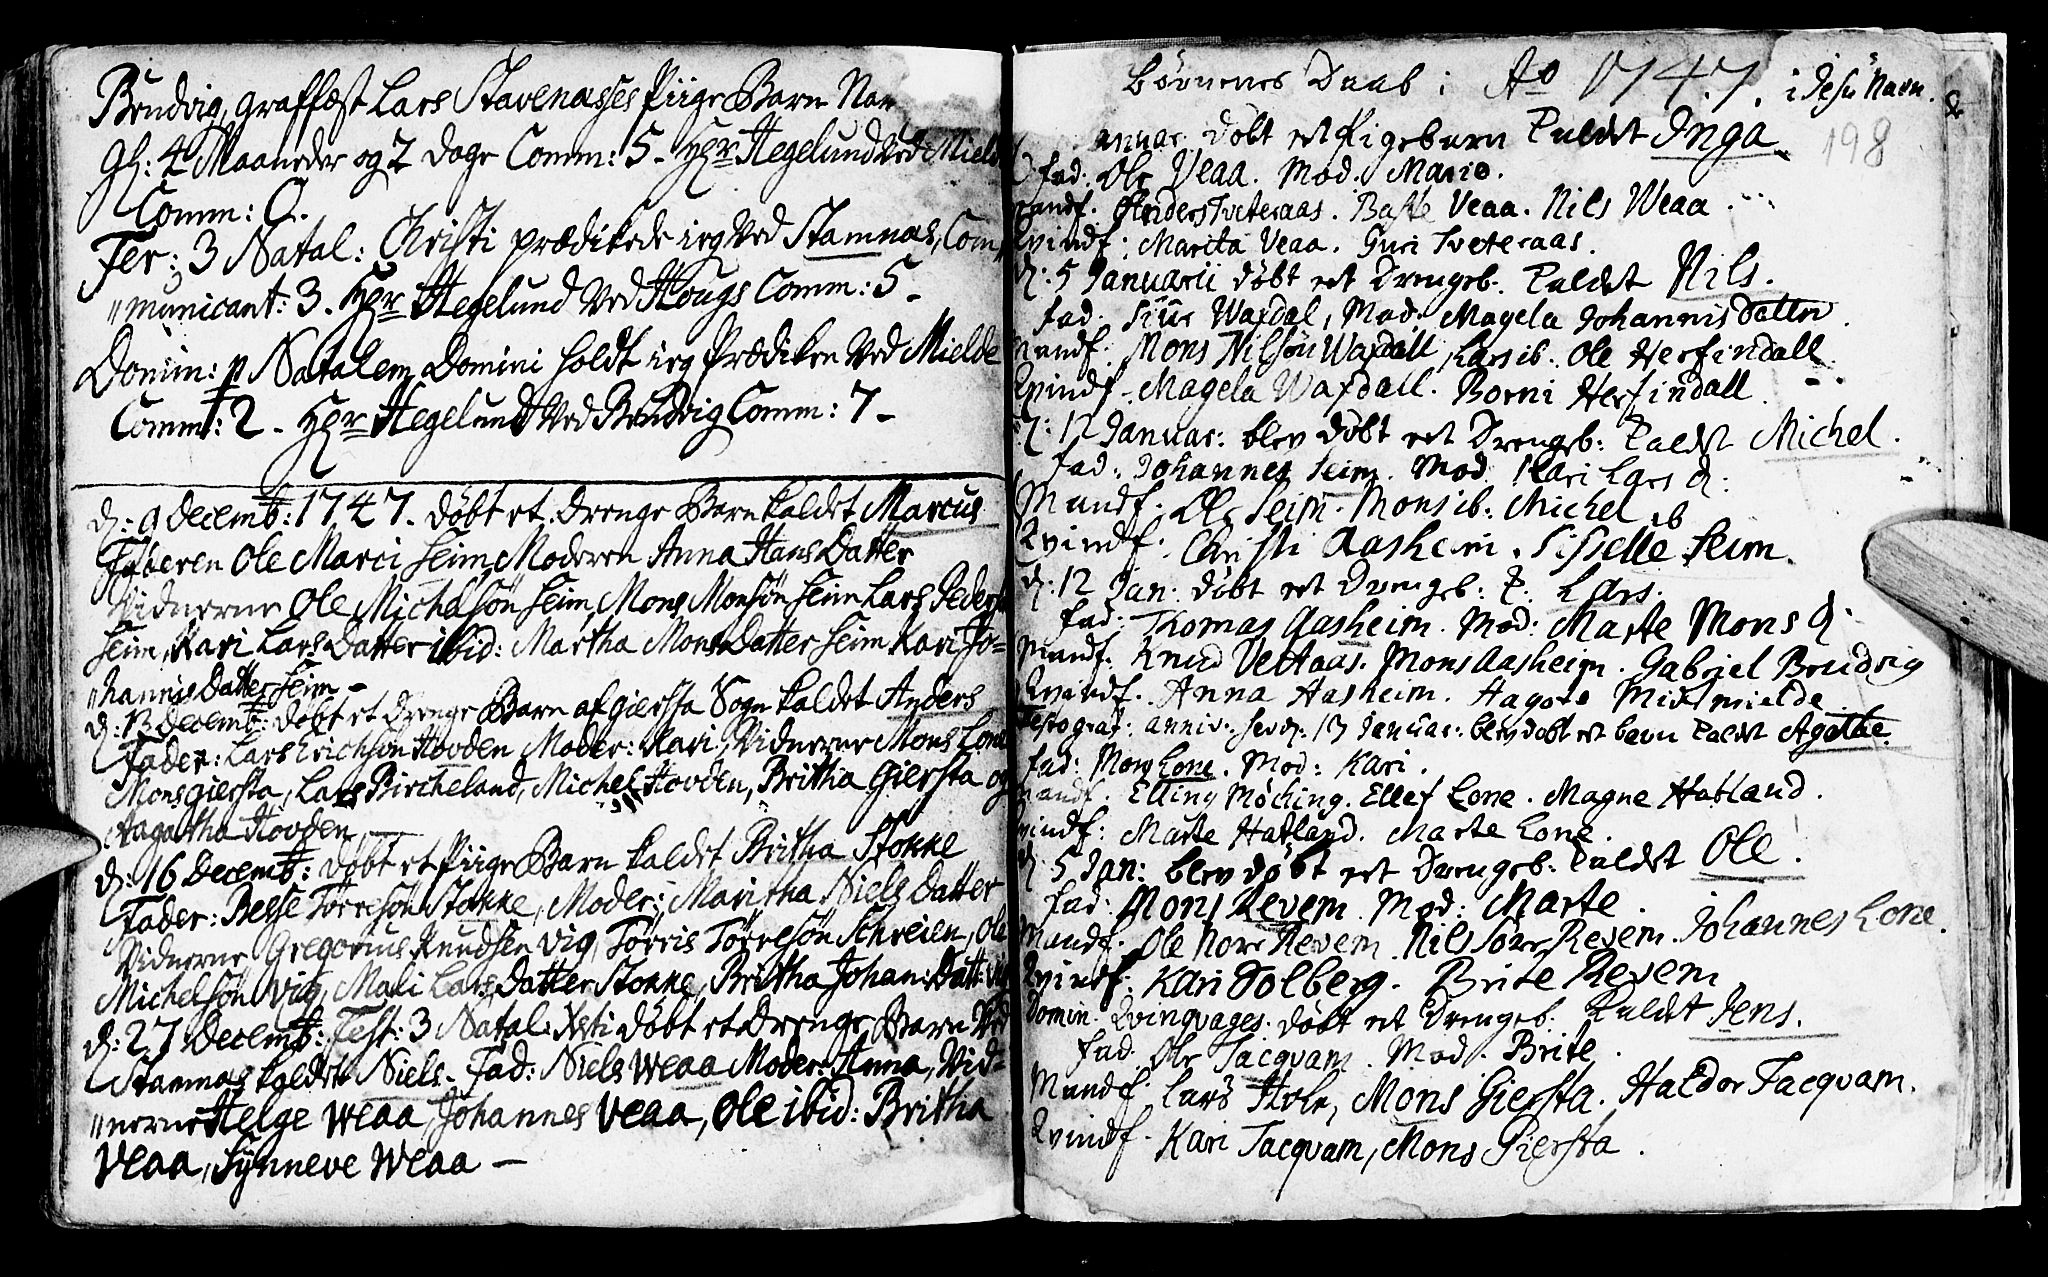 Brudvig, graffæst Lars Stavenasses Piige Barn Nar
Gl: 4 Maaneder og 2 dage Comm: 5 - Hr Hegelund Ved Mield
Comm: 0.
Fer: 3 Natal: Christi prædikede ieg Ved Stamnas, Com,
"municant: 3. Hr Hegelund Ved Hougs Comm: 5 -
Domin: p Natalem Domini holdt ieg Prædiken Ved Mielde
Comm: 2 - Hr Hegelund Ved Brudvig Comm: 7 -
d: 9 Decemb: 1747. døbt et drenge Barn kaldet Marcus
Faderen Ole Marci Seim, Moderen Anna Hans Datter
Vidnerne Ole Michelsøn Seim, Mons Monsøn Seim Lars Peders
Seim, Kari Lars Datter ibid: Martha Mons Datter Seim Kari Jo=
"hannis Datter Seim -
d: 13 Decemb: døbt et drenge Barn af Giersta Sogn kaldet Anders
Fader: Lars Erichsøn Hovden Moder: Kari, Vidnerne Mons Lone
Mons Giersta, Lars Bircheland, Michel Hovden, Britha Giersta og
Aagatha Hovden
d: 16 Decemb: døbt et Piige Barn kaldet Britha Stokke
Fader: Besse Tørresøn Stokke, Moder: Maritha Niels Datter
Vidnerne Gregorius Knudsen Vig, Tørris Tørresøn Schreien, Ole
Michelsøn Vig, Mali Lars Datter Stokke, Britha Johan: Datt:
d: 27 Decemb: Fest: 3 Natal: Xsti døbt et drenge Barn Ved
Stamnas kaldet Niels - Fad: Niels Weaa Moder: Anna, Vid-
"nerne Helge Weaa, Johannes Veaa, Ole ibid: Britha
Veaa, Synneve Weaa -
Børnenes Daab i Ao 1747. i Jesu Navn.
198
anuar: døbt et Pigebarn kaldet Inga
fad: Ole Veaa. Mod. Marie.
andf. Anders Tveteraas. Baste Veaa. Nils Weaa
Qvindf: Marita Veaa. Guri Tveteraas.
d: 5 Januarii døbt et Drengeb. kaldet Nils.
fad. Siur Waxdal, Mod. Magela Johannis Datter.
andf. Mons Nilsøn Waxdall, Lars ib. Ole Herfindall.
Qvindf. Magela Waxdall. Borni Herfindall.
d: 12 Januar: blev døbt et Drengeb: kaldet Michel.
fad: Johannes Seim. Mod. Kari Lars d:
Mandf. Ole Seim. Mons ib. Michel ib
Qvindf. Christi Aasheim. Sisselle Seim.
d: 12 Jan. døbt et Drengeb: k. Lars.
fad: Thomas Aasheim. Mod: Marte Mons d.
Mandf. Knud Vetaas. Mons Aasheim. Gabriel Brudvig
Qvindf. Anna Aasheim. Aagote Mitmielde
blev døbt et barn kaldet Agathe.
fad: Mons Lone. Mod: Kari.
andf. Elling Møching. Ellef Lone. Magne Hatland.
vindf: Marte Hatland. Marte Lone.
d. 5 Jan: blev døbt et Drengeb. kaldet Ole.
fad: Mons Revem. Mod: Marte.
Mandf. Ole Nore Revem. Nils Søre Revem. Johannes Lone.
Qvindf. Kari Dolberg. Brite Revem
Domin. Qvinqvages. døbt et Drengeb. kaldet Jens.
fad. Ole Tacqvam. Mod. Brite.
Mandf. Lars Hole, Mons Giersta. Haldor Tacqvam.
Qvindf. Kari Tacqvam, Mons Giersta.